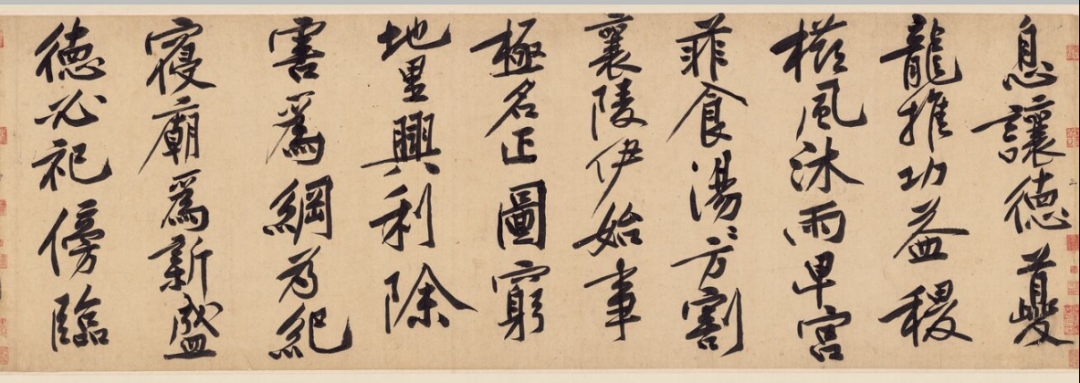 息讓德夔
龍推功益稷
櫛風沐雨卑宮
菲食湯〻方割
襄陵伊始事
極名正圖窮
地里興利除
害爲綱為紀
寢廟爲新盛
德必祀傍臨